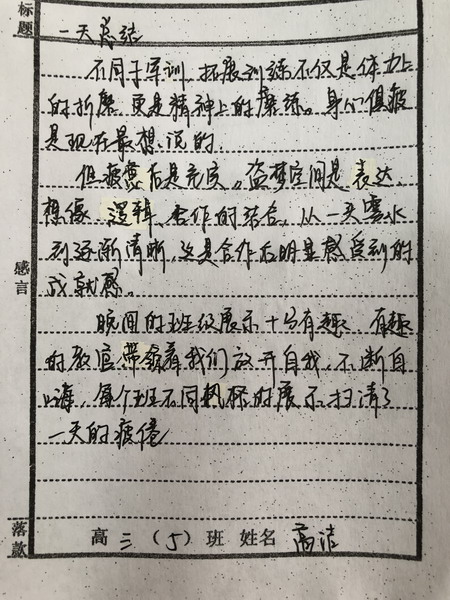 标题
一天总结
不同于军训，拓展训练不仅是体力上
的折磨，更是精神上的磨练。身心俱疲
是现在最想说的。
但疲惫后是充实。盗梦空间是表达、
想像、逻辑、合作的结合，从一头雾水
到逐渐清晰，这是合作后明显感受到的
成就感。
感言
晚间的班级展示十分有趣，有趣
的教官带领着我们放开自我，不断自
嗨，每个班不同风格的展示扫清了
一天的疲倦
落款
高二（5）班 姓名 高洁